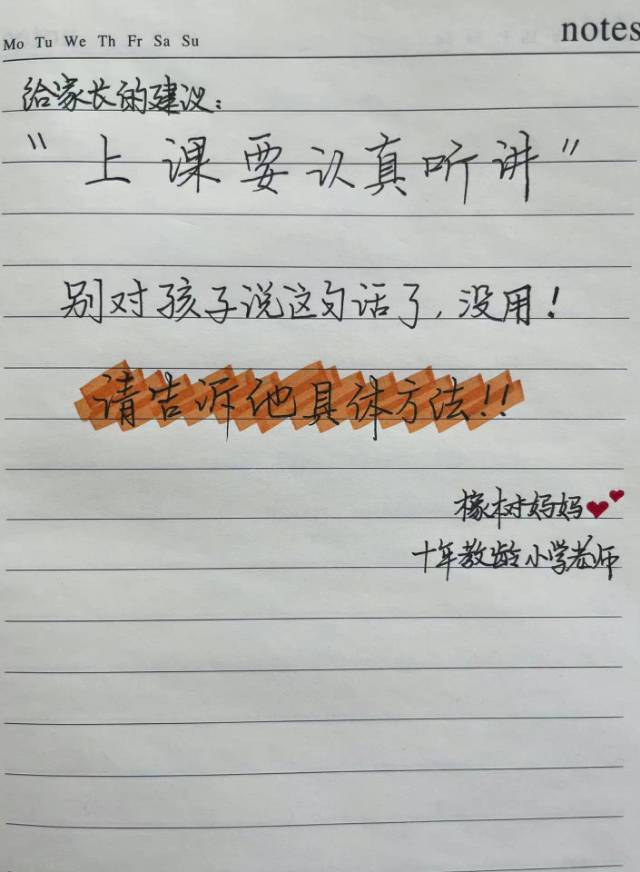 notes
Mo Tu We Th Fr Sa Su
给家长的建议：
“上课要认真听讲”
别对孩子说这句话了，没用！
请告诉他具体方法！！
橡树妈妈
十年教龄小学老师